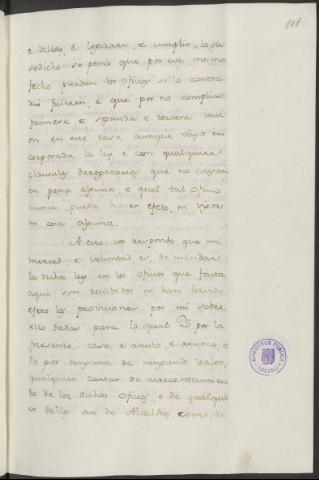 e villas, e lugares, e cumplir, lo su
sodicho so pena que por ese mesmo
fecho pierdan los oficios si lo contra
rio ficieren, e que por no complir
primera e segunda e tercera iusi
on en este caso, aunque vaya en
corporada la ley e con qualquiera
clausulas derogatorias que no cayan
en pena alguna, e quel tal oficio
nunca pueda haver efeto, ni vigor
ni cosa alguna.
A esto vos respondo que mi
merced e voluntad es, de mandar
la dicha ley en los oficios que fasta
aqui son recibidos ni han havido
efeto las provisiones por mi sobre
ello dadas para lo qual por la
presente, caso, e anulo e revoco, e
do por ninguna de ningund valor
qualquier cartas de acrecentamien
to de los dichos oficios, o de qualqui
er dellos asi de Alcaldias como de
BIBLIOTECA PUBLICA
TOLEDO